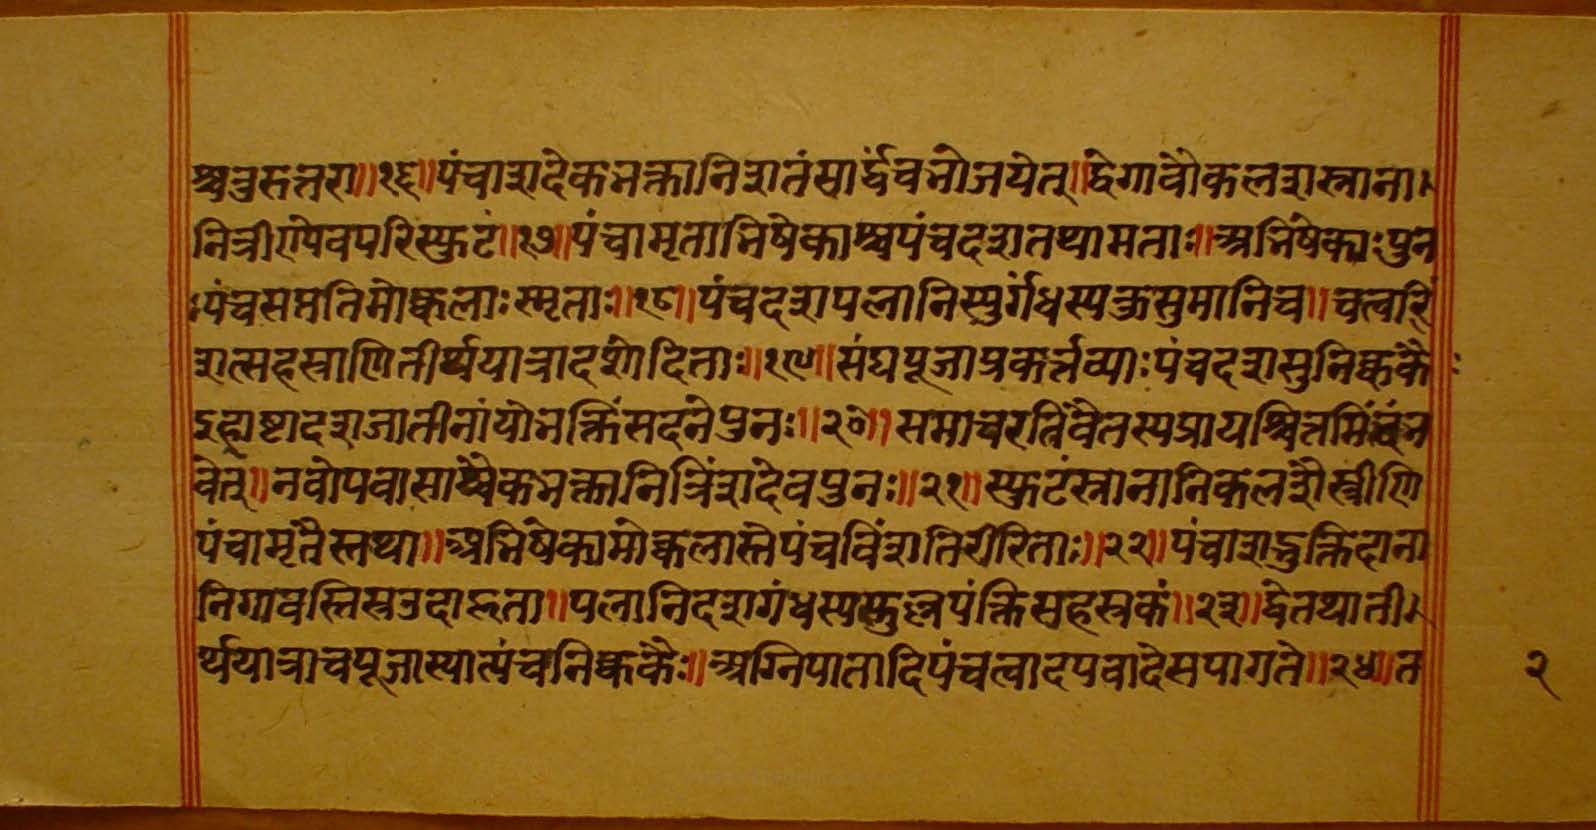 श्चतुरुत्तरा॥१६॥पंचाशदेकभक्तानिशतंसार्द्धंचभोजयेत्॥द्वेगावौकलशस्नाना।
नित्रीण्येवपरिस्फुटं॥१७॥पंचामृताभिषेकाश्चपंचदशतथामताः॥अभिषेकाःपुन
ःपंचसप्ततिमोक्कलाःस्मृताः॥१८॥पंचदशपलानिस्युर्गंधस्यकुसुमानिच॥चत्वारिं
शत्सहस्राणितीर्थयात्रादशोदिताः॥१९॥संघपूजाप्रकर्त्तव्याःपंचदशसुनिष्ककैः
गृहाष्टादशजातीनांयोभक्तिंसदनेपुनः॥२०॥समाचरतिवैतस्यप्रायश्चित्तमिदंन
वेत्॥नवोपवासाश्चैकभक्तानित्रिंशदेवपुनः॥२१॥स्फुटंस्नानानिकलशैस्त्रीणि
पंचामृतैस्तथा॥अभिषेकामोक्कलास्तेपंचविंशतिरीरिताः॥२२॥पंचाशद्भुक्तिदाना
निगावस्तिस्रउदाहृता॥पलानिदशगंधस्यस्तुपुष्पंपंक्तिसहस्रकं॥२३॥द्वेतथाती।
र्थयात्राचपूजास्यात्पंचनिष्ककैः॥अग्निपातादिपंचत्वादपवादेसपागते॥२४॥त
२